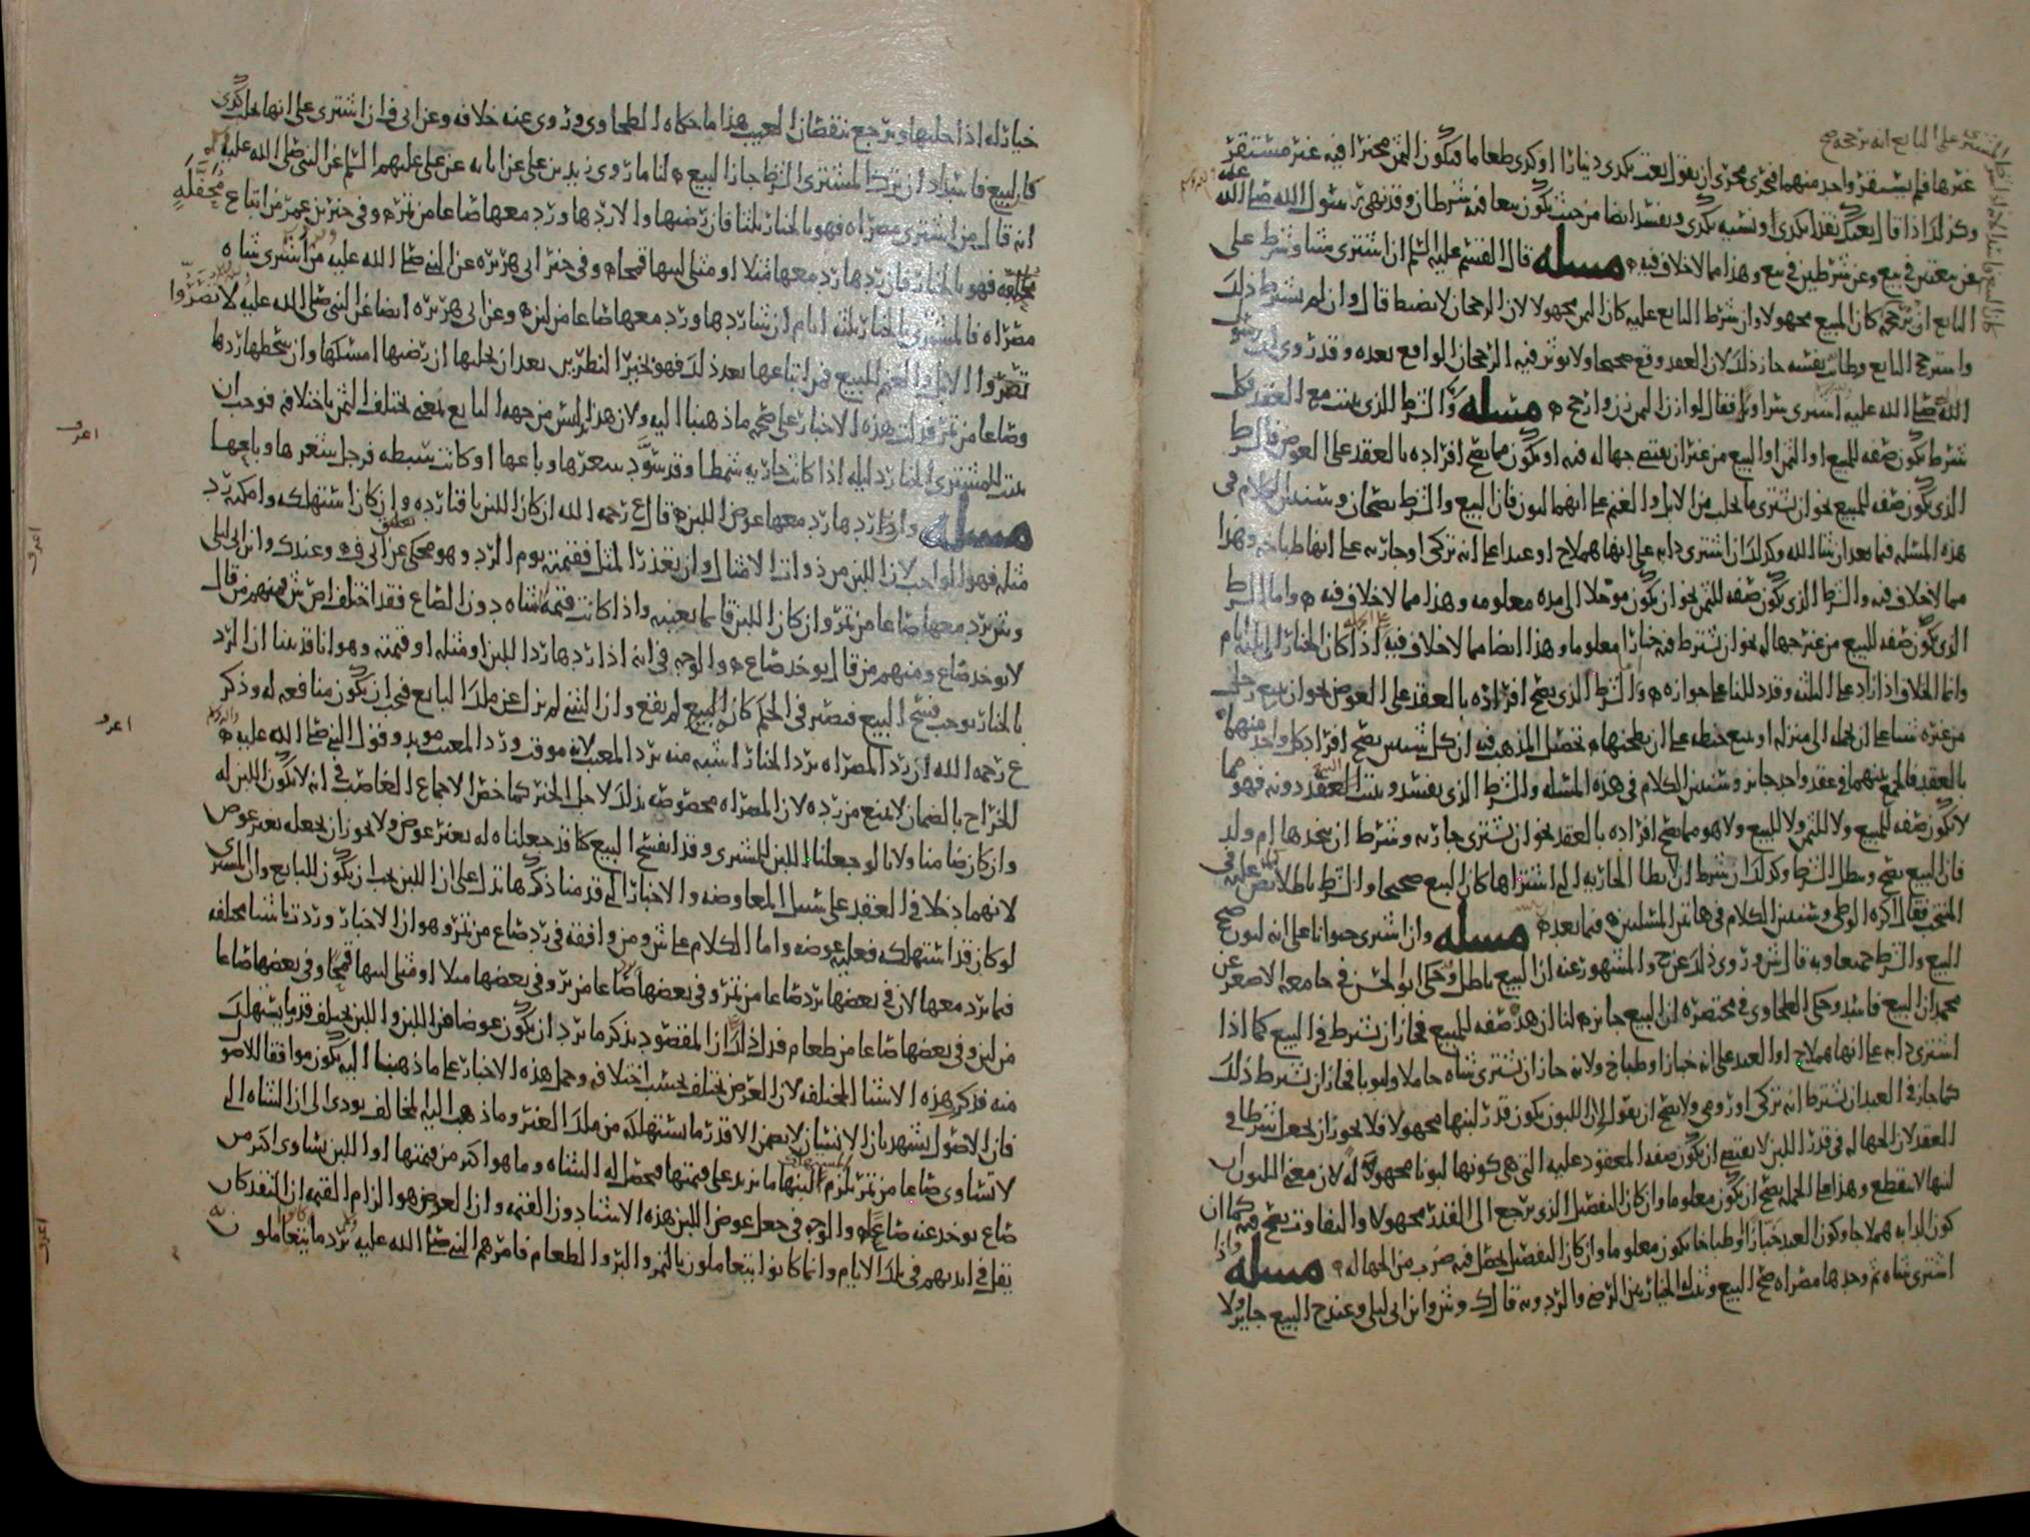 غيرها فلم يستقر واحد منهما فجرى مجرى ان يقول بعت بكذى دينارا او كرى طعاما فيكون الثمن مخيرا فيه غير مستقر
وكذلك اذا قال بعتك نقدا بكذى او نسية بكذى ويفسد ايضا من حيث يكون بيعا فيه شرطان وقد نهى رسول الله صلى الله عليه
عن بيعتين في بيع وعن شرطين في بيع وهذا مما لا خلاف فيه مسله قال القسم عليه السلم ان اشترى شيا وشرط على
البايع ان يرجحه كان المبيع مجهولا وان شرط البايع عليه كان الثمن مجهولا لان الرجحان لا يضبط قال وان لم يشترط ذلك
واسترجح البايع وطاب نفسه جاز ذلك لان العقد وقع صحيحا ولا يوثر فيه الرجحان الواقع بعده وقد روى ان رسول
الله صلى الله عليه اشترى سراويل فقال لوازن الثمن زن وارجح مسله والشرط الذى يثبت مع العقد فكل
شرط يكون صفه للمبيع او الثمن او البيع من غير ان يقتضي جهاله فيه او يكون مما يصح افراده بالعقد على العوض فالشرط
الذى يكون صفه للمبيع نحو ان يشترى ما يحلب من الابل والغنم على انهما لبون فان البيع والشرط يصحان وسنبين الكلام في
هذه المسله فيما بعد ان شا الله وكذلك ان اشترى دابه على انها هملاج او عبدا على انه تركى او جاريه على انها طباخه وهذا
مما لا خلاف فيه والشرط الذى يكون صفه للثمن نحو ان يكون موجلا الى مده معلومه وهذا مما لا خلاف فيه واما الشرط
الذى يكون صفه للبيع من غير جهاله نحو ان يشترط فيه خيارا معلوما وهذا ايضا مما لا خلاف فيه اذا كان الخيار الى ثلثه ايام
وانما الخلاف اذا زاد على الثلثه وقد دللنا على جوازه والشرط الذى يصح افراده بالعقد على العوض نحو ان يبيع رجل
من غيره شيا على ان يحمله الى منزله او يبيع حنطه على ان يطحنها تحصيل المذهب فيه ان كل شيين يصح افراد كل واحد منهما
بالعقد فالجمع بينهما في عقد واحد جايز وسنبين الكلام في هذه المسله والشرط الذى يفسد ويثبت العقد دونه فهو مما
لا يكون صفه للمبيع ولا للثمن ولا للبيع ولا هو مما يصح افراده بالعقد نحو ان يشترى جاريه ويشرط ان يتخذها ام ولد
فان البيع يصح ويبطل الشرط وكذلك ان شرط ان لا يطا الجاريه التى اشتراها كان البيع صحيحا والشرط باطلا نص عليه في
المنتخب فقال اكره الوطى وسنبين الكلام في هاتين المسلتين فيما بعد مسله وان اشترى حيوانا على انه لبون صح
البيع والشرط جميعا وبه قال ش وروى ذلك عن ح والمشهور عنه ان البيع باطل وحكى ابو الحسن في جامعه الاصغر عن
محمد ان البيع فاسد وحكى الطحاوى في مختصره ان البيع جايز لنا ان هذه صفه للمبيع فجاز ان تشرط في البيع كما اذا
اشترى دابه على انها هملاج او العبد على انه خباز او طباخ ولانه جاز ان تشترى شاه حاملا ولبونا فجاز ان تشرط ذلك
كما جاز في العبد ان تشترط انه تركى او رومى ولا يصح ان يقول ان اللبون يكون قدر لبنها مجهولا فلا يجوز ان يجعل شرطا في
العقد لان الجهاله في قدر اللبن لا يقتضي ان يكون صفه المعقود عليه التى هى كونها لبونا مجهولا له لان معنى اللبون ان
لبنها لا ينقطع وهذا على الجمله يصح ان يكون معلوما وان كان التفصيل الذى يرجع الى القدر مجهولا والتفاوت يصح فيه كما ان
كون الدابه هملاجا وكون العبد خبازا او طباخا يكون معلوما وان كان التفصيل يحصل فيه ضرب من الجهاله مسله واذا
اشترى شاه ثم وجدها مصراه صح البيع وثبت الخيار بين الرضى والرد وبه قال ك وش وابن ابى ليلى وعند ح البيع جايز ولا
خيار له اذا حلبها ويرجع بنقصان العيب هذا ما حكاه الطحاوى وروى عنه خلافه وعن ابى ف ان اشترى على انها تحلب كذى
كان البيع فاسدا وان ترك المشترى الشرط جاز البيع لنا ما روى زيد بن على عن ابايه عن على عليهم السلم عن النبى صلى الله عليه
انه قال من اشترى مصراه فهو بالخيار ثلثا فان رضيها والا ردها ورد معها صاعا من تمر وفي خبر بن عمر من ابتاع محفله
فهو بالخيار فان ردها رد معها مثلا او مثلى لبنها قمحا وفي خبر ابى هريره عن النبى صلى الله عليه من اشترى شاه
مصراه فالمشترى بالخيار ثلثه ايام ان شا ردها ورد معها صاعا من لبن وعن ابى هريره ايضا عن النبى صلى الله عليه لا تصروا
تصروا الابل والغنم للبيع فمن ابتاعها بعد ذلك فهو بخير النظرين بعد ان يحلبها ان رضيها امسكها وان سخطها ردها
وصاعا من تمر فدلت هذه الاخبار على صحه ما ذهبنا اليه ولان هذا تدليس من جهه البايع لمعنى يختلف الثمن باختلافه فوجب ان
يثبت للمشترى الخيار دليله اذا كانت جاريه شمطا وقد سود شعرها وباعها او كانت سبطه فرجل شعرها وباعها
مسله واذا ردها رد معها عوض اللبن قال ع رحمه الله ان كان اللبن باقيا رده وان كان استهلكه وامكنه رد
مثله فهو الواجب لان اللبن من ذوات الامثال وان تعذر المثل فقيمته يوم الرد وهو محكى عن ابى ف وعند ك وابن ابى ليلى
وش يرد معها صاعا من تمر وان كان اللبن قايما بعينه واذا كانت قيمه الشاه دون الصاع فقد اختلف اص ش فمنهم من قال
لا يوخذ صاع ومنهم من قال يوخذ صاع والوجه في انه اذا ردها رد اللبن او مثله او قيمته وهو انا قد بينا ان الرد
بالخيار يوجب فسخ البيع فيصير في الحكم كان البيع لم يقع وان الشى لم يزل عن ملك البايع فيجب ان يكون منافعه له وذكر
ع رحمه الله ان رد المصراه برد الخيار اشبه منه برد المعيب لانه موقت ورد المعيب موبد وقول النبى صلى الله عليه
الخراج بالضمان لا يمنع من رده لان المصراه مخصوصه بذلك لاجل الخبر كما خص الاجماع الغاصب في انه لا يكون اللبن له
وان كان ضامنا ولانا لو جعلنا اللبن للمشترى وقد انفسخ البيع كنا قد جعلناه له بغير عوض ولا يجوز ان يجعله بغير عوض
لانهما دخلا في العقد على سبيل المعاوضه والاخبار التى قدمنا ذكرها تدل على ان اللبن يجب ان يكون للبايع وان المشترى
لو كان قد استهلكه فعليه عوضه واما الكلام على ش ومن وافقه في رد صاع من تمر وهو ان الاخبار وردت باشيا مختلفه
فيما يرد معها لان في بعضها يرد صاعا من تمر وفي بعضها صاعا من بر وفي بعضها مثلا او مثلى لبنها قمحا وفي بعضها صاعا
من لبن وفي بعضها صاعا من طعام فدل ذلك ان المقصود بذكر ما يرد ان يكون عوضا من اللبن واللبن يختلف قدر ما يستهلك
منه فذكر هذه الاشيا المختلفه لان الغرض يختلف بحسب اختلافه وحمل هذه الاخبار على ما ذهبنا اليه يكون موافقا للاصول
فان الاصول يشهد بان الانسان لا يضمن الا قدر ما يستهلكه من ملك الغير وما ذهب اليه المخالف يودى الى ان الشاه التى
لا تساوى صاعا من تمر يلزم للبنها ما يزيد على قيمتها فيحصل له الشاه وما هو اكثر من قيمتها او اللبن يساوى اكثر من
صاع يوخذ عنه صاع والوجه في جعل عوض اللبن هذه الاشيا دون القيمه وان العوض هو الزام القيمه ان النقد كان
يقل في ايديهم في تلك الايام وانما كانوا يتعاملون بالتمر والبر والطعام فامرهم النبى صلى الله عليه برد ما يتعاملون